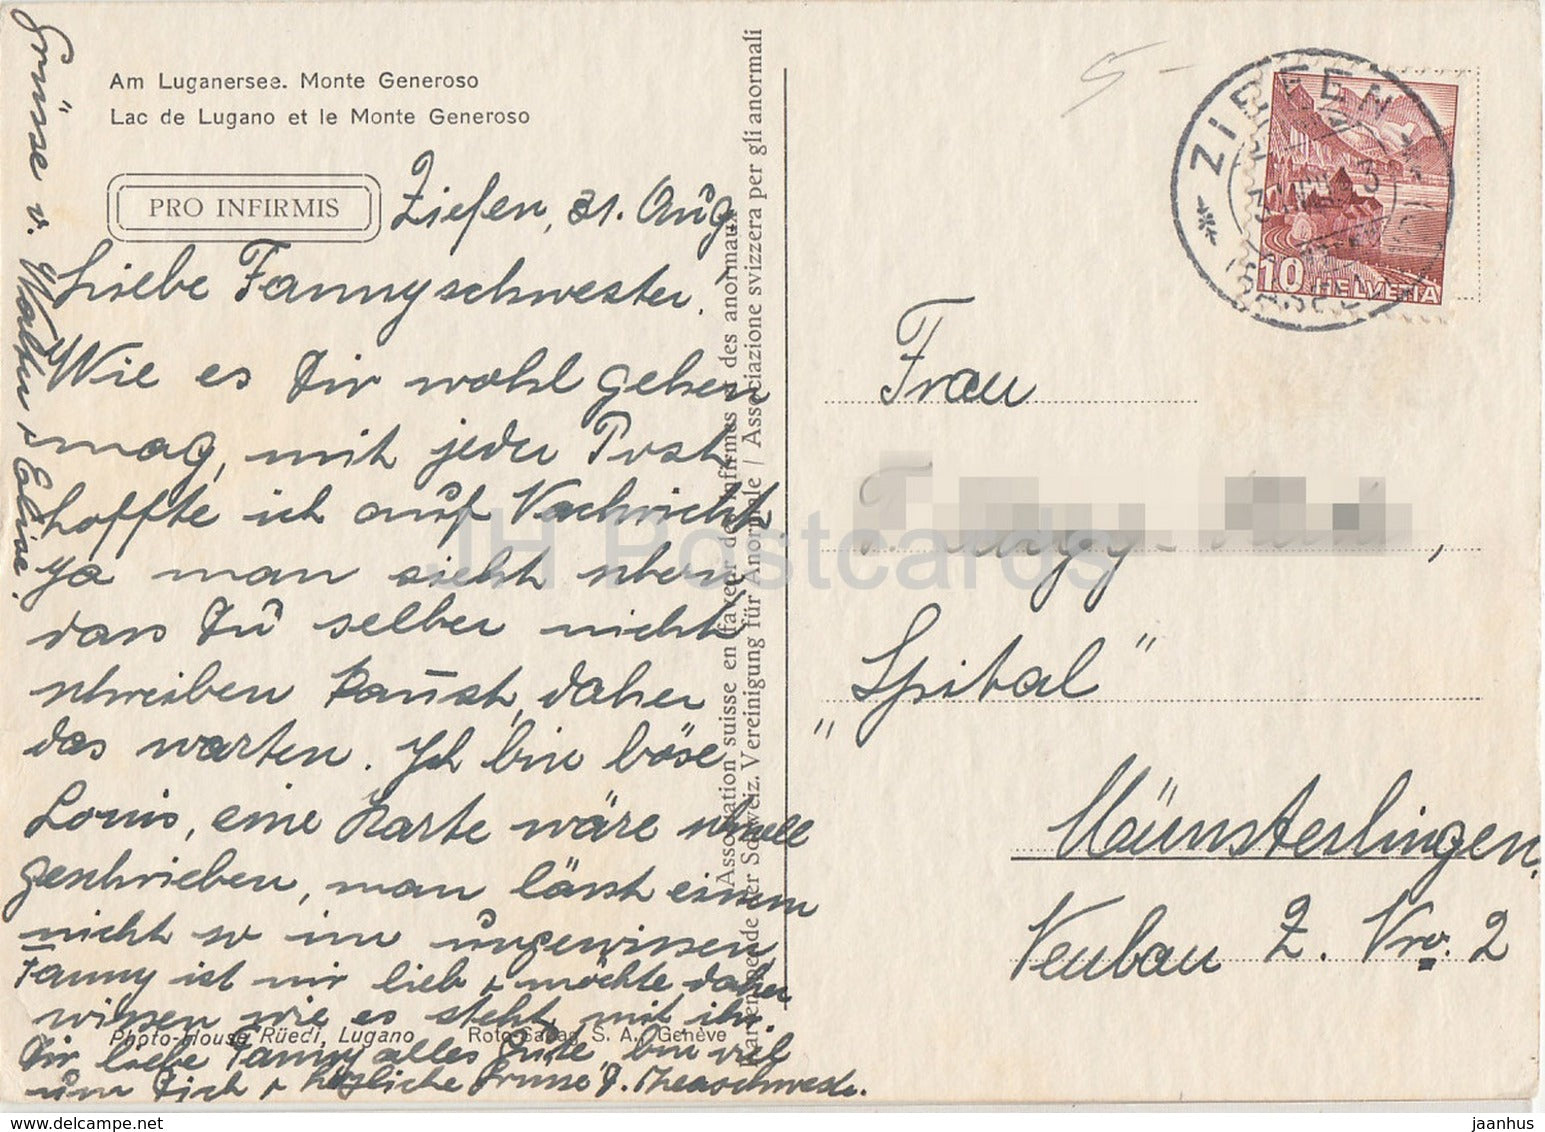 Am Luganersee. Monte Generoso
Lac de Lugano et le Monte Generoso
PRO INFIRMIS
Ziefen, 31. Aug.
Liebe Fannyschwester.
Wie es Dir wohl gehen
mag, mit jeder Post
hoffte ich auf Nachricht
ja man sieht eben
dass Du selber nicht
schreiben kannst, daher
das warten. Ich bin böse
Louis, eine Karte wäre schnell
geschrieben, man lässt einem
nicht so im ungewissen
Fanny ist mir lieb + möchte daher
wissen wie es steht mit ihr.
Dir liebe Fanny alles Gute, bin viel
um Dich + herzliche Grüsse
Photo-House Rüedi, Lugano
Roto-Sadag S. A., Genève
Grüsse v. Walter + Elise.
Association suisse en faveur des infirmes et des anormaux
Kartenspende der Schweiz. Vereinigung für Anormale / Associazione svizzera per gli anormali
5-
ZIEFEN
10 HELVETIA
Frau
„Spital"
Münsterlingen.
Neubau Z. Nro. 2
JH Postcards
www.jhpostcards.com
jaanhus